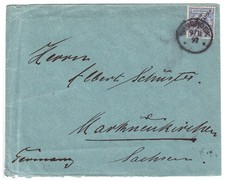 Herrn
Albert Schuster
Markneukirchen
Sachsen
Germany